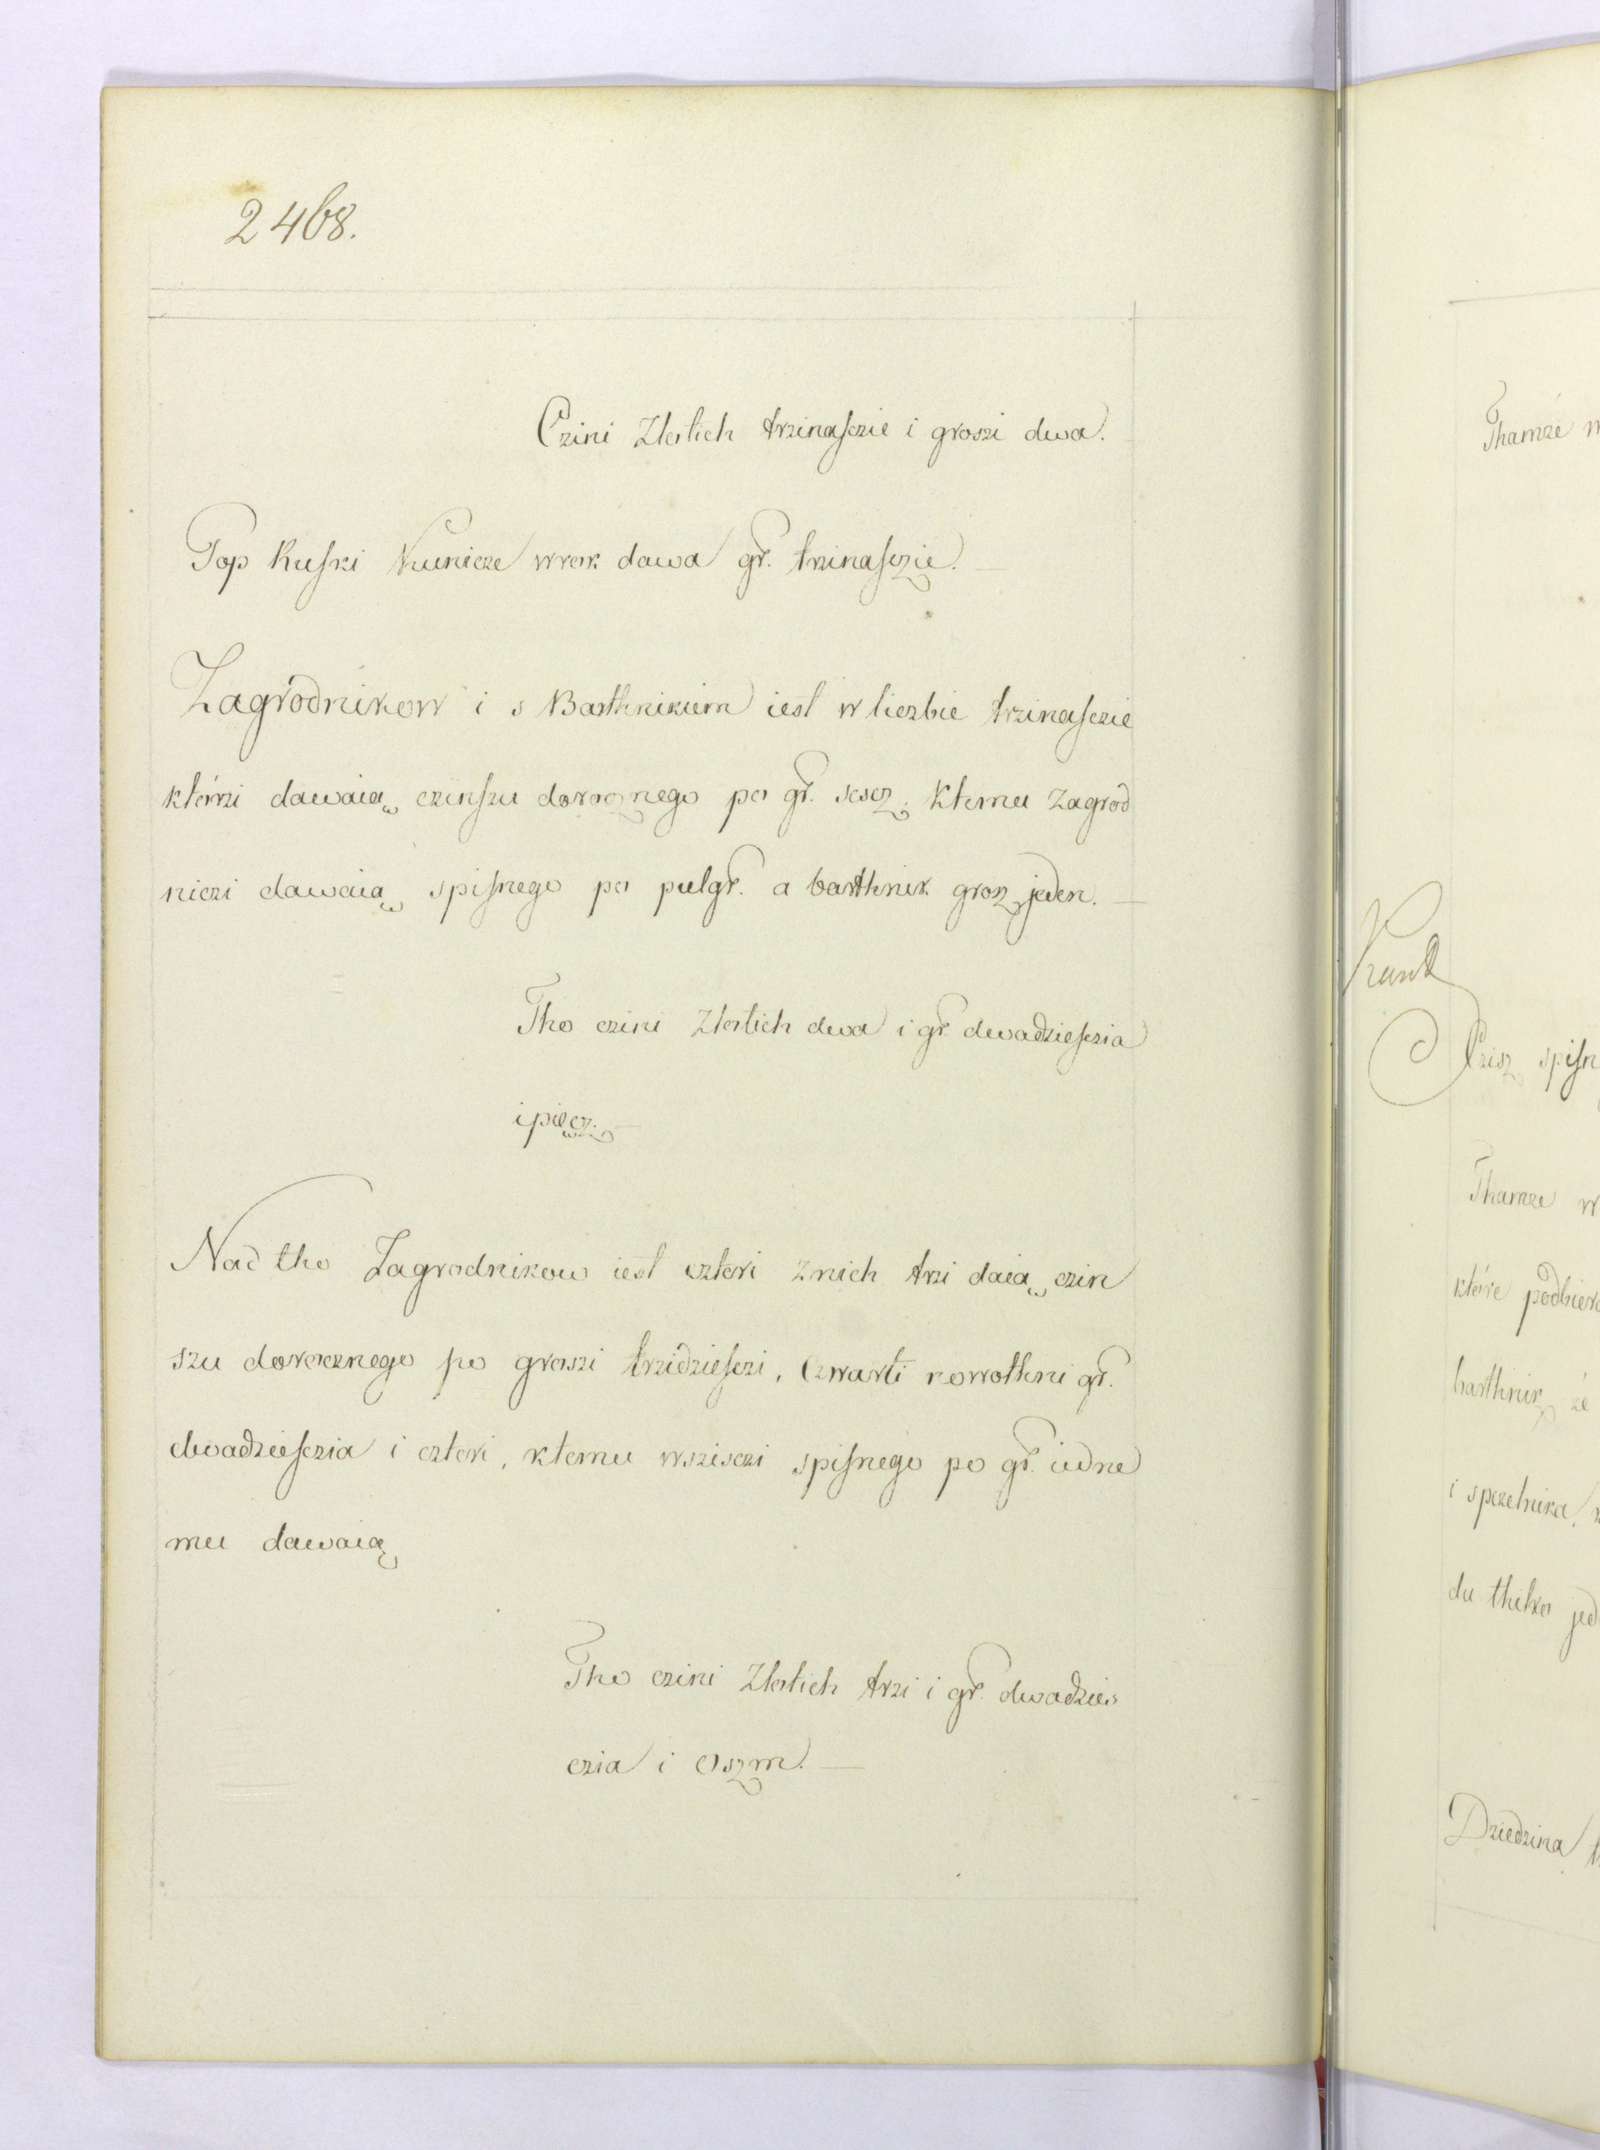 2468.
Czini Złotich trzinaſczie i groszi dwa.
Pop Ruſki Kunicze wrok dawa gr. trzinaſczie.
Zagrodnikow i s Barthnikiem iest w liczbie trzinaſczie
którzi dawaią czinſzu dorocznego po gr. sescz. ktemu zagrod
niczi dawaią spiſnego po pulgr. a barthnik grosz jeden.
Tho czini Złotich dwa i gr. dwadzieſczia
i piecz.
Nad tho Zagrodnikow iest czteri z nich trzi daią czin
szu dorocznego po groszi trzidzieſczi, Czwarti nowothni gr.
dwadzieſczia i czteri, ktemu wszisczi spiſnego po gr. iedne
mu dawaią
Tho czini Złotich trzi i gr. dwadzies
czia i Oszm.
Thamże
Czisz spiſn
Thamze w
które podbier
barthnik że
i spczelnika
du thilko jed
Dziedzina